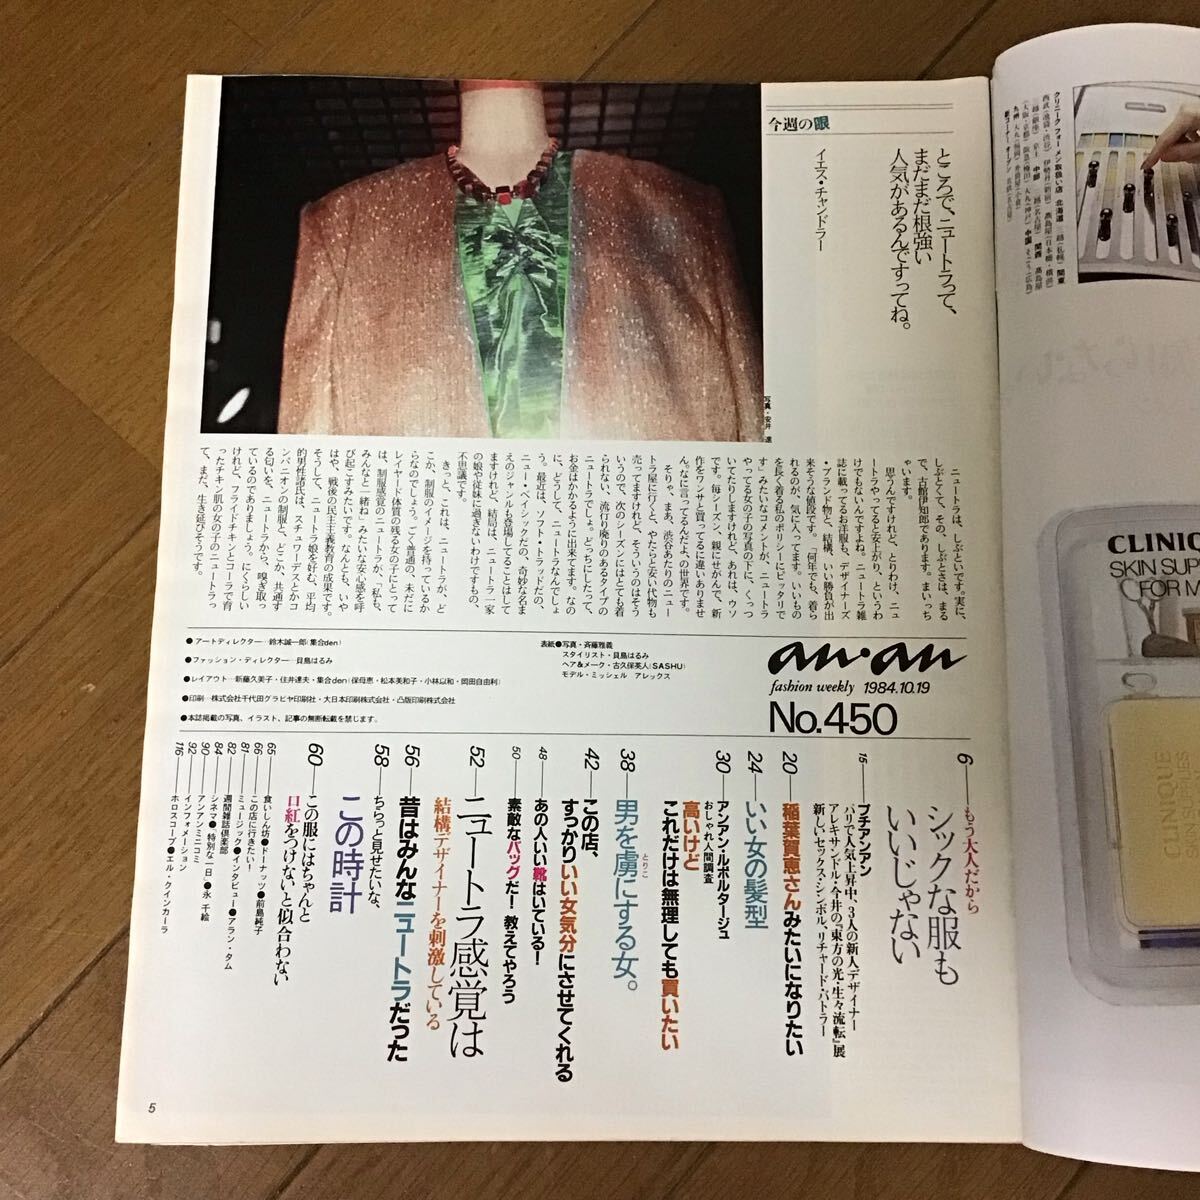 今週の眼
ところで、ニュートラって、
まだまだ根強い
人気があるんですってね。
イエス・チャンドラー
写真・安井 進
ニュートラは、しぶといです。実に、
しぶとくて、その、しぶとさは、まる
で、古館伊知郎であります。まいっち
ゃいます。
思うんですけれど、とりわけ、ニュ
ートラやってると安上がり、というわ
けでもないんですよね。ニュートラ雑
誌に載ってるお洋服も、デザイナーズ
・ブランド物と、結構、いい勝負が出
来そうな値段です。「何年でも、着ら
れるのが、気に入ってます。いいもの
を長く着る私のポリシーにピッタリで
す」みたいなコメントが、ニュートラ
やってる女の子の写真の下に、くっつ
いてたりしますけれど、あれは、ウソ
です。毎シーズン、親にせがんで、新
作をワンサと買ってるに違いありませ
ん。なに言ってるんだよ、の世界です。
そりゃ、まあ、渋谷あたりのニュー
トラ屋に行くと、やたらと安い代物も
売ってますけれど、そういうのはそう
いうので、次のシーズンにはとても着
られない、流行り廃りのあるタイプの
ニュートラでしょ。どっちにしたって、
お金はかかるように出来てます。なの
に、どうして、ニュートラなんでしょ
う。最近は、ソフト・トラッドだの、
ニュー・ベイシックだの、奇妙な名ま
えのジャンルも登場してることはして
ますけれど、結局は、ニュートラ一家
の娘や従妹に過ぎないわけですもの、
不思議です。
きっと、これは、ニュートラが、ど
こか、制服のイメージを持っているか
らなのでしょう。ごく普通の、未だに
レイヤード体質の残る女の子にとって
は、制服感覚のニュートラが、「私も、
みんなと一緒ね」みたいな安心感を呼
び起こすみたいです。なんとも、いや
はや、戦後の民主主義教育の成果です。
そうして、ニュートラ娘を好む、平均
的男性諸氏は、スチュワーデスとかコ
ンパニオンの制服と、どこか、共通す
る匂いを、ニュートラから、嗅ぎ取っ
ているのでありましょう。にくらしい
けれど、フライドチキンとコーラで育
ったチキン肌の女の子のニュートラっ
て、まだ、生き延びそうです。
●アートディレクター…鈴木誠一郎(集合den)
●ファッション・ディレクター…貝島はるみ
●レイアウト…新藤久美子・住井達夫・集合den(保母恵・松本美和子・小林以和・岡田自由利)
●印刷…株式会社千代田グラビヤ印刷社・大日本印刷株式会社・凸版印刷株式会社
●本誌掲載の写真、イラスト、記事の無断転載を禁じます。
表紙●写真・斉藤雅義
スタイリスト・貝島はるみ
ヘア&メーク・古久保英人(SASHU)
モデル・ミッシェル アレックス
an・an
fashion weekly 1984.10.19
No.450
6 もう大人だから
シックな服も
いいじゃない
15 プチアンアン
パリで人気上昇中、3人の新人デザイナー
アレキサンドル・今井の『東方の光・生々流転』展
新しいセックス・シンボル、リチャード・バトラー
20 稲葉賀恵さんみたいになりたい
24 いい女の髪型
30 アンアン・ルポルタージュ
おしゃれ人間調査
高いけど
これだけは無理しても買いたい
38 男を虜にする女。
とりこ
42 この店、
すっかりいい女気分にさせてくれる
48 あの人いい靴はいている!
50 素敵なバッグだ! 教えてやろう
52 ニュートラ感覚は
結構デザイナーを刺激している
56 昔はみんなニュートラだった
58 ちらっと見せたいな、
この時計
60 この服にはちゃんと
口紅をつけないと似合わない
65 食いしん坊●ドーナッツ●前島純子
66 この店に行きたい!
81 ミュージック●インタビュー●アラン・タム
82 週間雑誌倶楽部
84 シネマ●「特別な一日」●永 千絵
90 アンアンミニコミ
92 インフォメーション
116 ホロスコープ●エル・クインカーラ
5
クリニーク フォーメン取扱い店
CLINIQUE
SKIN SUP
FOR M
CLINIQUE